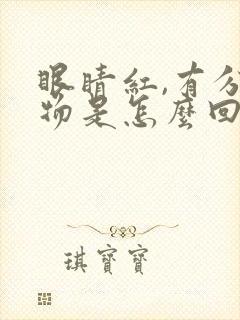 眼睛红,有分
物是怎麼回
琪寶寶